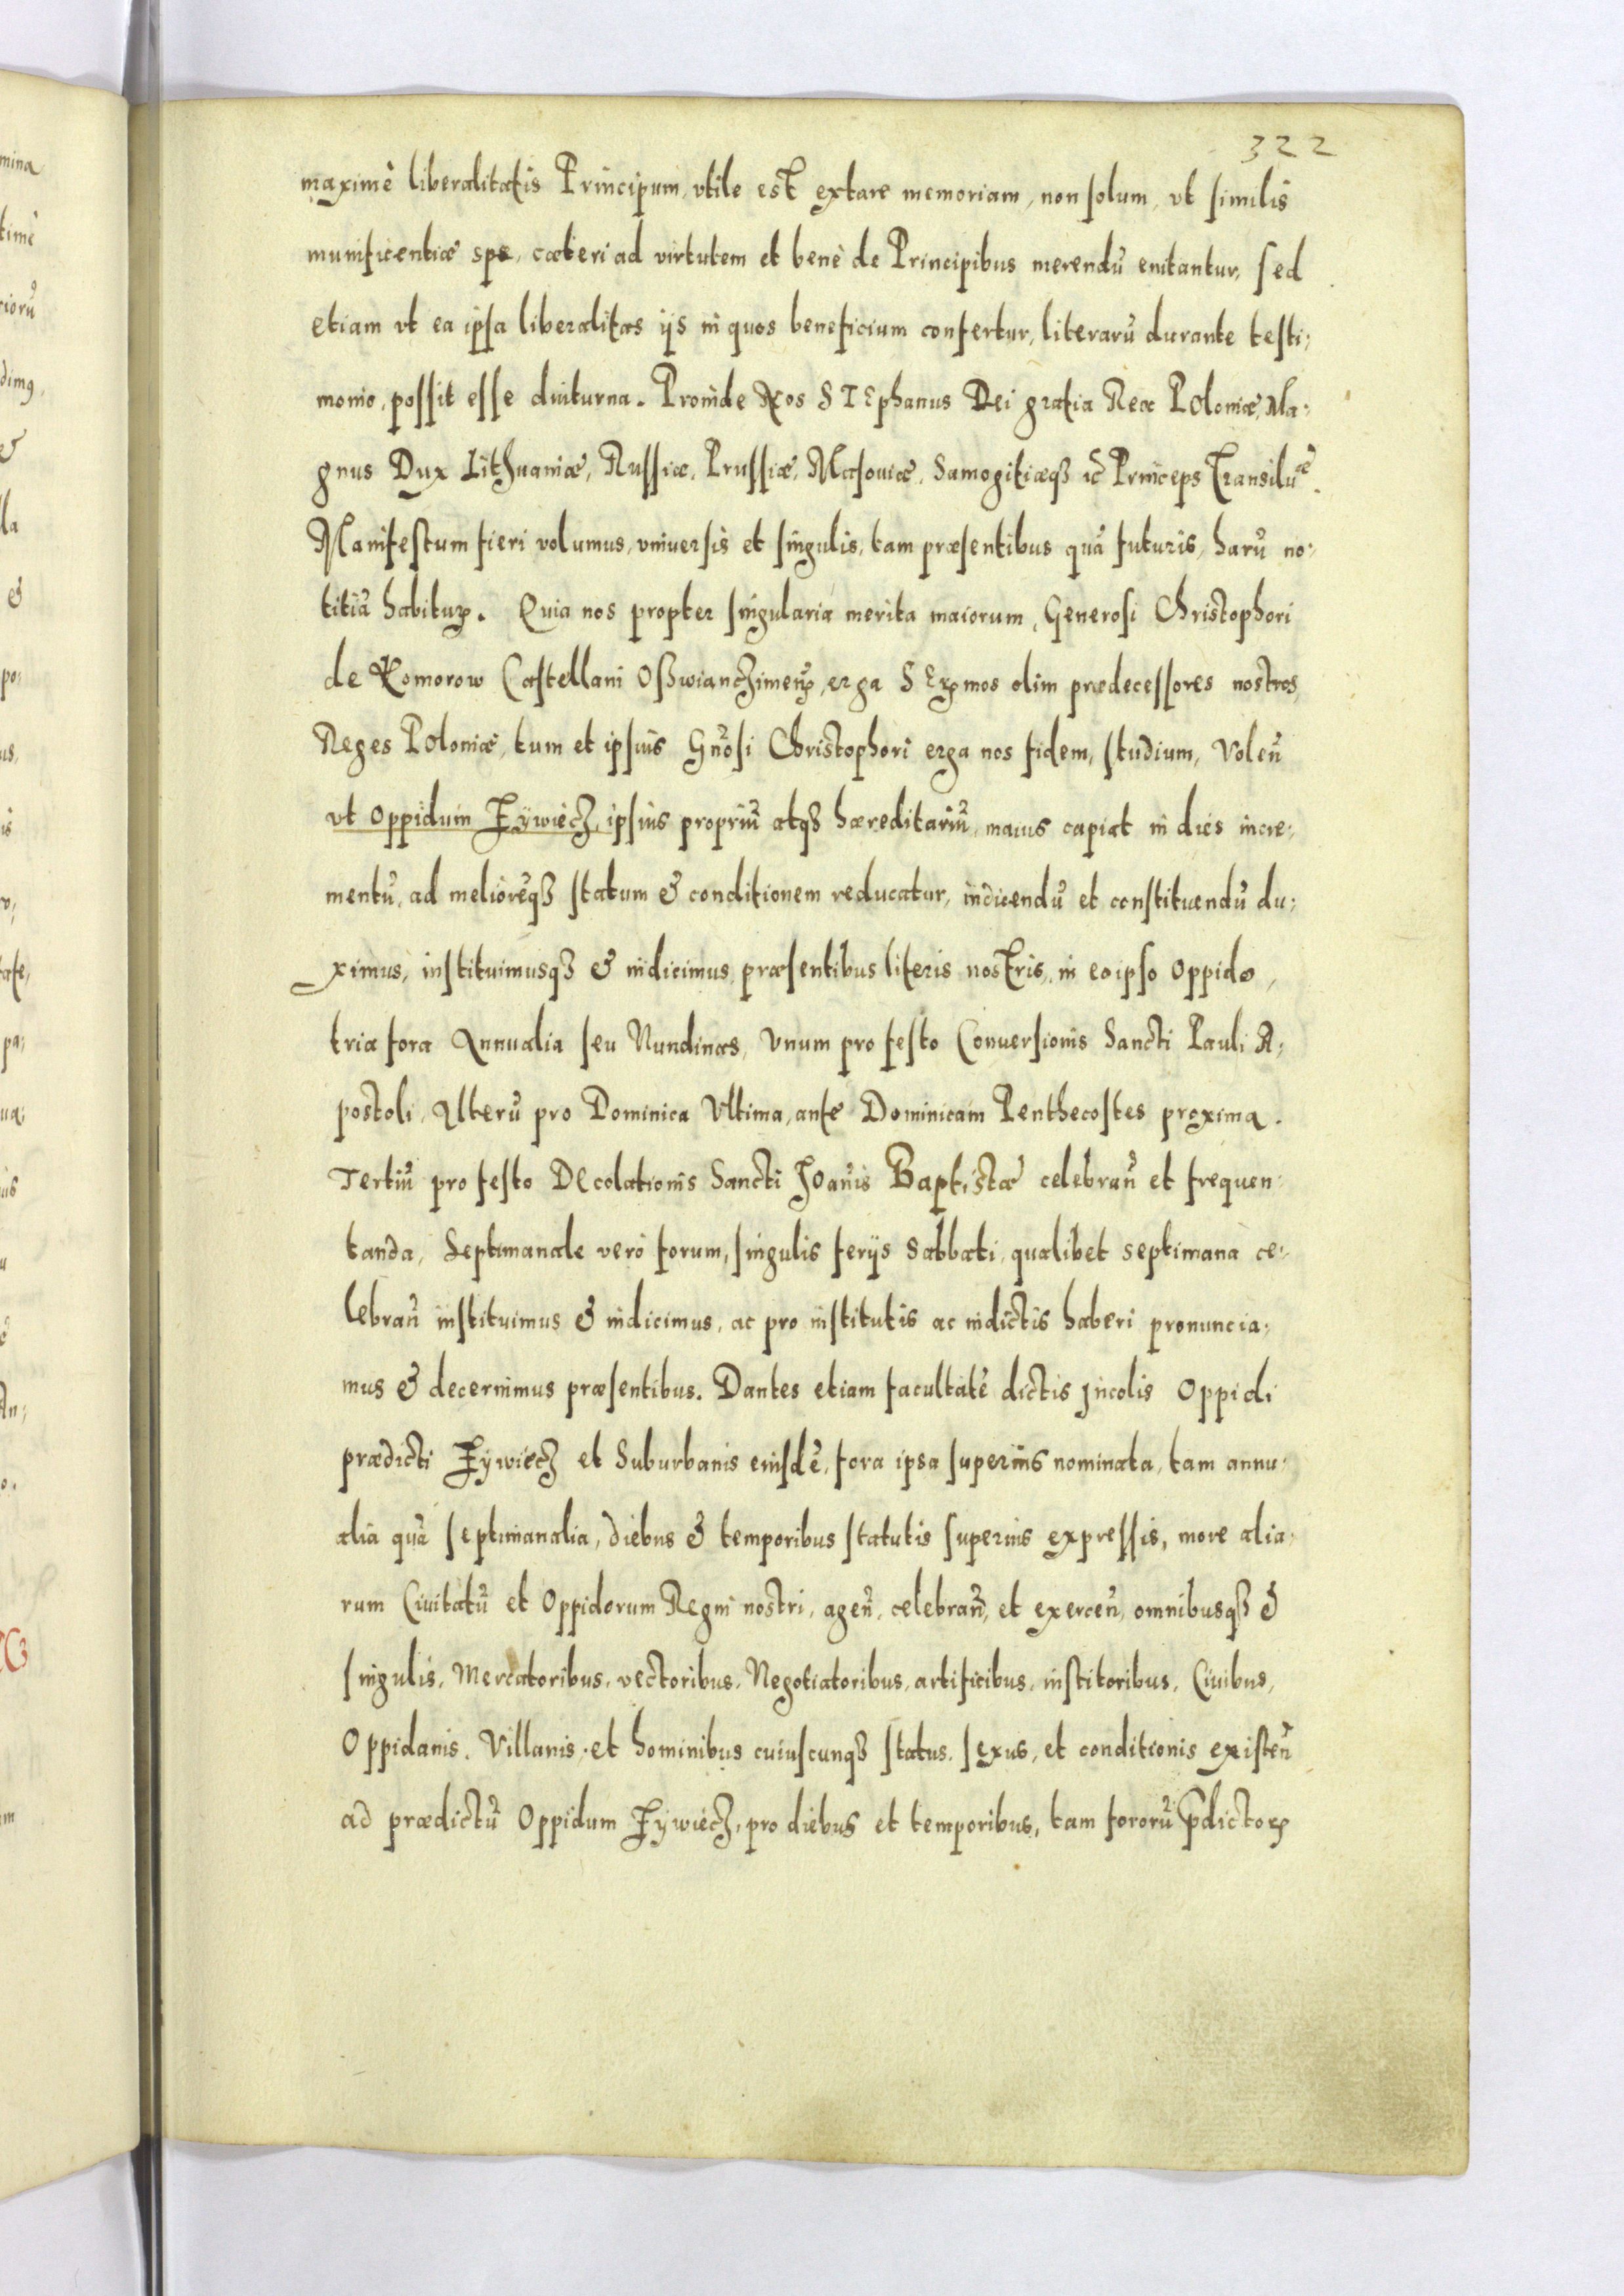 322
maximè liberalitatis Principum, vtile est extare memoriam, non solum, vt similis
munificentiæ spe, cæteri ad virtutem et benè de Principibus merendũ enitantur, sed
etiam vt ea ipsa liberalitas ijs in quos beneficium confertur, literarũ durante testi,
monio, possit esse diuturna. Proinde Nos STEphanus Dei gratia Rex Poloniæ, Ma,
gnus Dux Lithuaniæ, Russiæ, Prussiæ, Masouiæ, Samogitiæqꝫ ꝛc̃ Princeps Transiluæ.
Manifestum fieri volumus, vniuersis et singulis, tam præsentibus quã futuris, harũ no,
titiã habituꝝ. Quia nos propter singularia merita maiorum, Generosi Christophori
de Komorow Castellani Oswianczimeñ, erga SEꝝmos olim prædecessores nostros,
Reges Poloniæ, tum et ipsius Gñosi Christophori erga nos fidem, studium, Voleñ
vt Oppidum Zywiecz, ipsius propriũ atqꝫ hæreditariũ, maius capiat in dies incre,
mentũ, ad meliorẽqꝫ statum & conditionem reducatur, indicendũ et constituendũ du,
ximus, instituimusqꝫ & indicimus præsentibus literis nostris, in eo ipso Oppido,
tria fora Annualia seu Nundinas, Vnum pro festo Conuersionis Sancti Pauli A,
postoli, Alterũ pro Dominica Vltima, ante Dominicam Penthecostes proxima.
Tertiũ pro festo Decolationis Sancti Joañis Baptistæ celebrañ et frequen,
tanda, Septimanale verò forum, singulis ferijs Sabbati, qualibet septimana ce,
lebrañ instituimus & indicimus, ac pro institutis ac indictis haberi pronuncia,
mus & decernimus præsentibus. Dantes etiam facultatẽ dictis Jncolis Oppidi
prædicti Zywiecz et Suburbanis eiusdẽ, fora ipsa superius nominata, tam annu,
alia quã septimanalia, diebus & temporibus statutis superius expressis, more alia,
rum Ciuitatũ et Oppidorum Regni nostri, ageñ, celebrañ, et exerceñ, omnibusqꝫ &
singulis, Mercatoribus, vectoribus, Negotiatoribus, artificibus, institoribus, Ciuibus,
Oppidanis, Villanis, et hominibus cuiuscunqꝫ status, sexus, et conditionis existeñ
ad prædictũ Oppidum Zywiecz, pro diebus et temporibus, tam fororũ p̃dictoꝝ